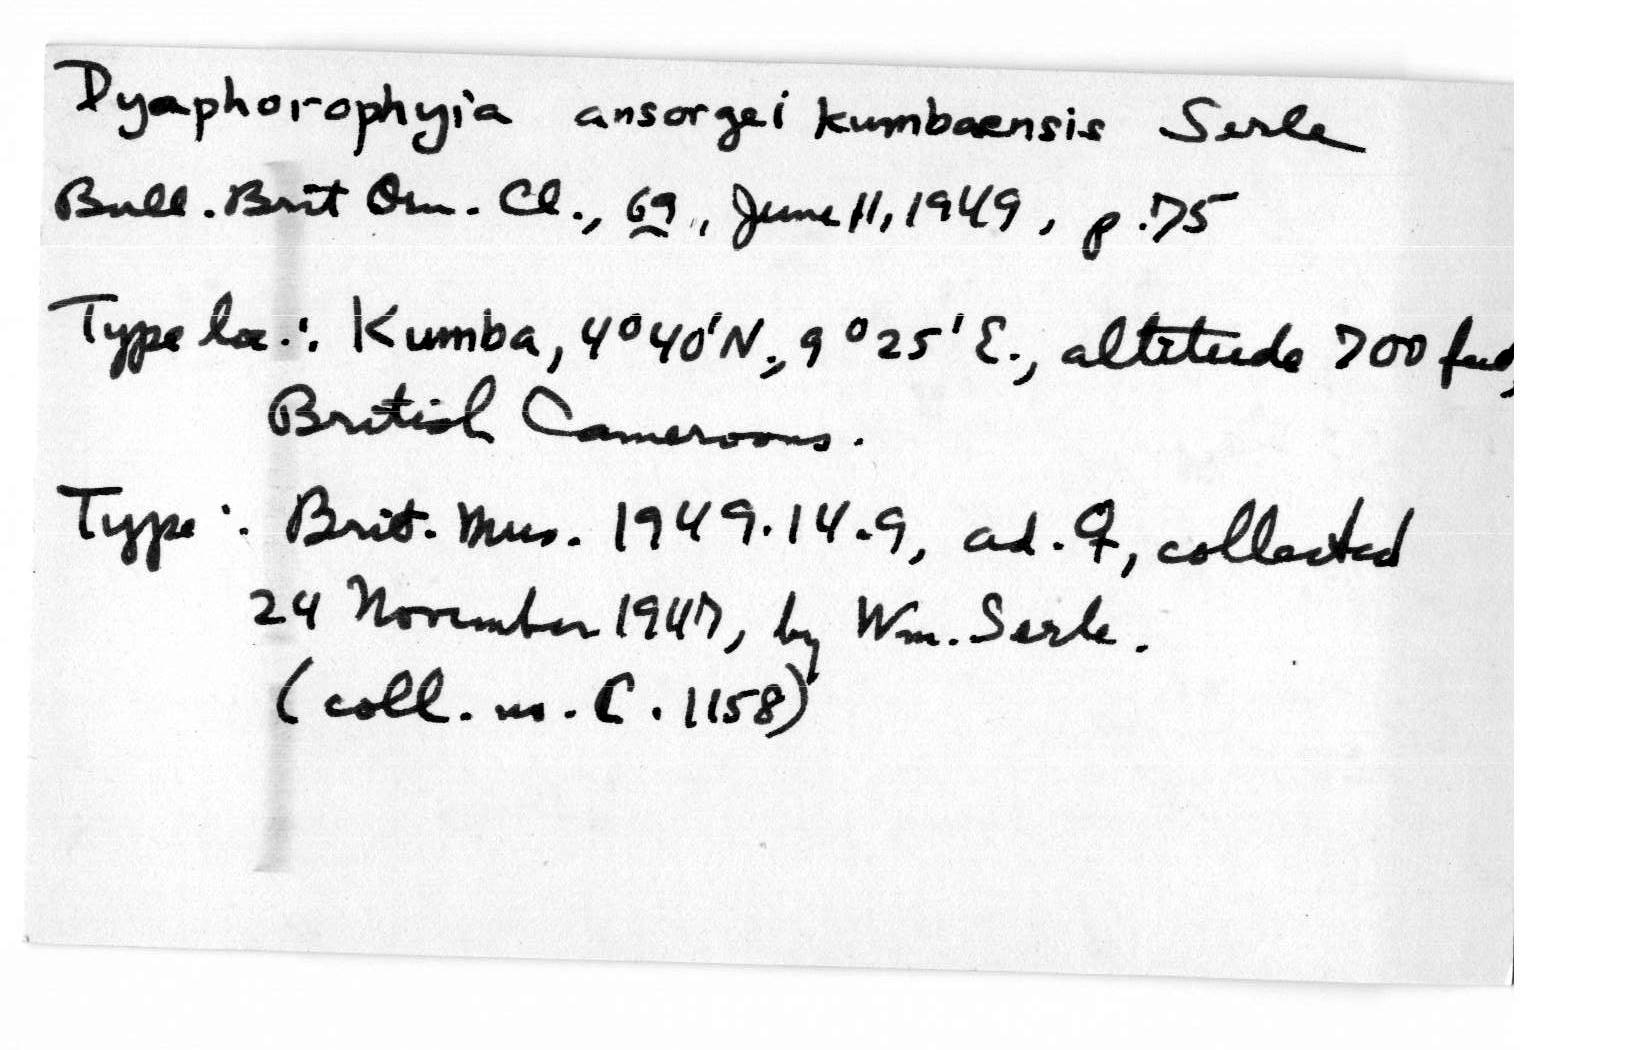 Dyaphorophyia ansorgei kumbaensis Serle
Bull. Brit Orn. Cl., 69, June 11, 1949, p. 75
Type loc.: Kumba, 4°40'N., 9°25'E., altitude 700 feet,
British Cameroons.
Type: Brit. Mus. 1949.14.9, ad. ♀, collected
24 November 1947, by Wm. Serle.
(coll. no. C. 1158)